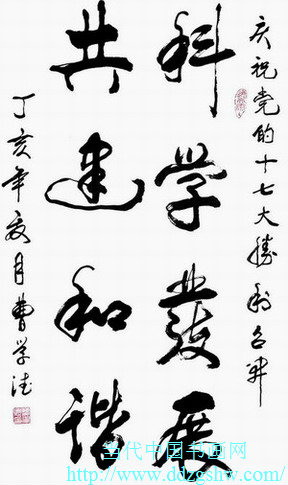 庆祝党的十七大勝利召开
科学發展
共建和谐
丁亥年夏月曹学
当代中国书画网
http://www.ddzgshw.com/